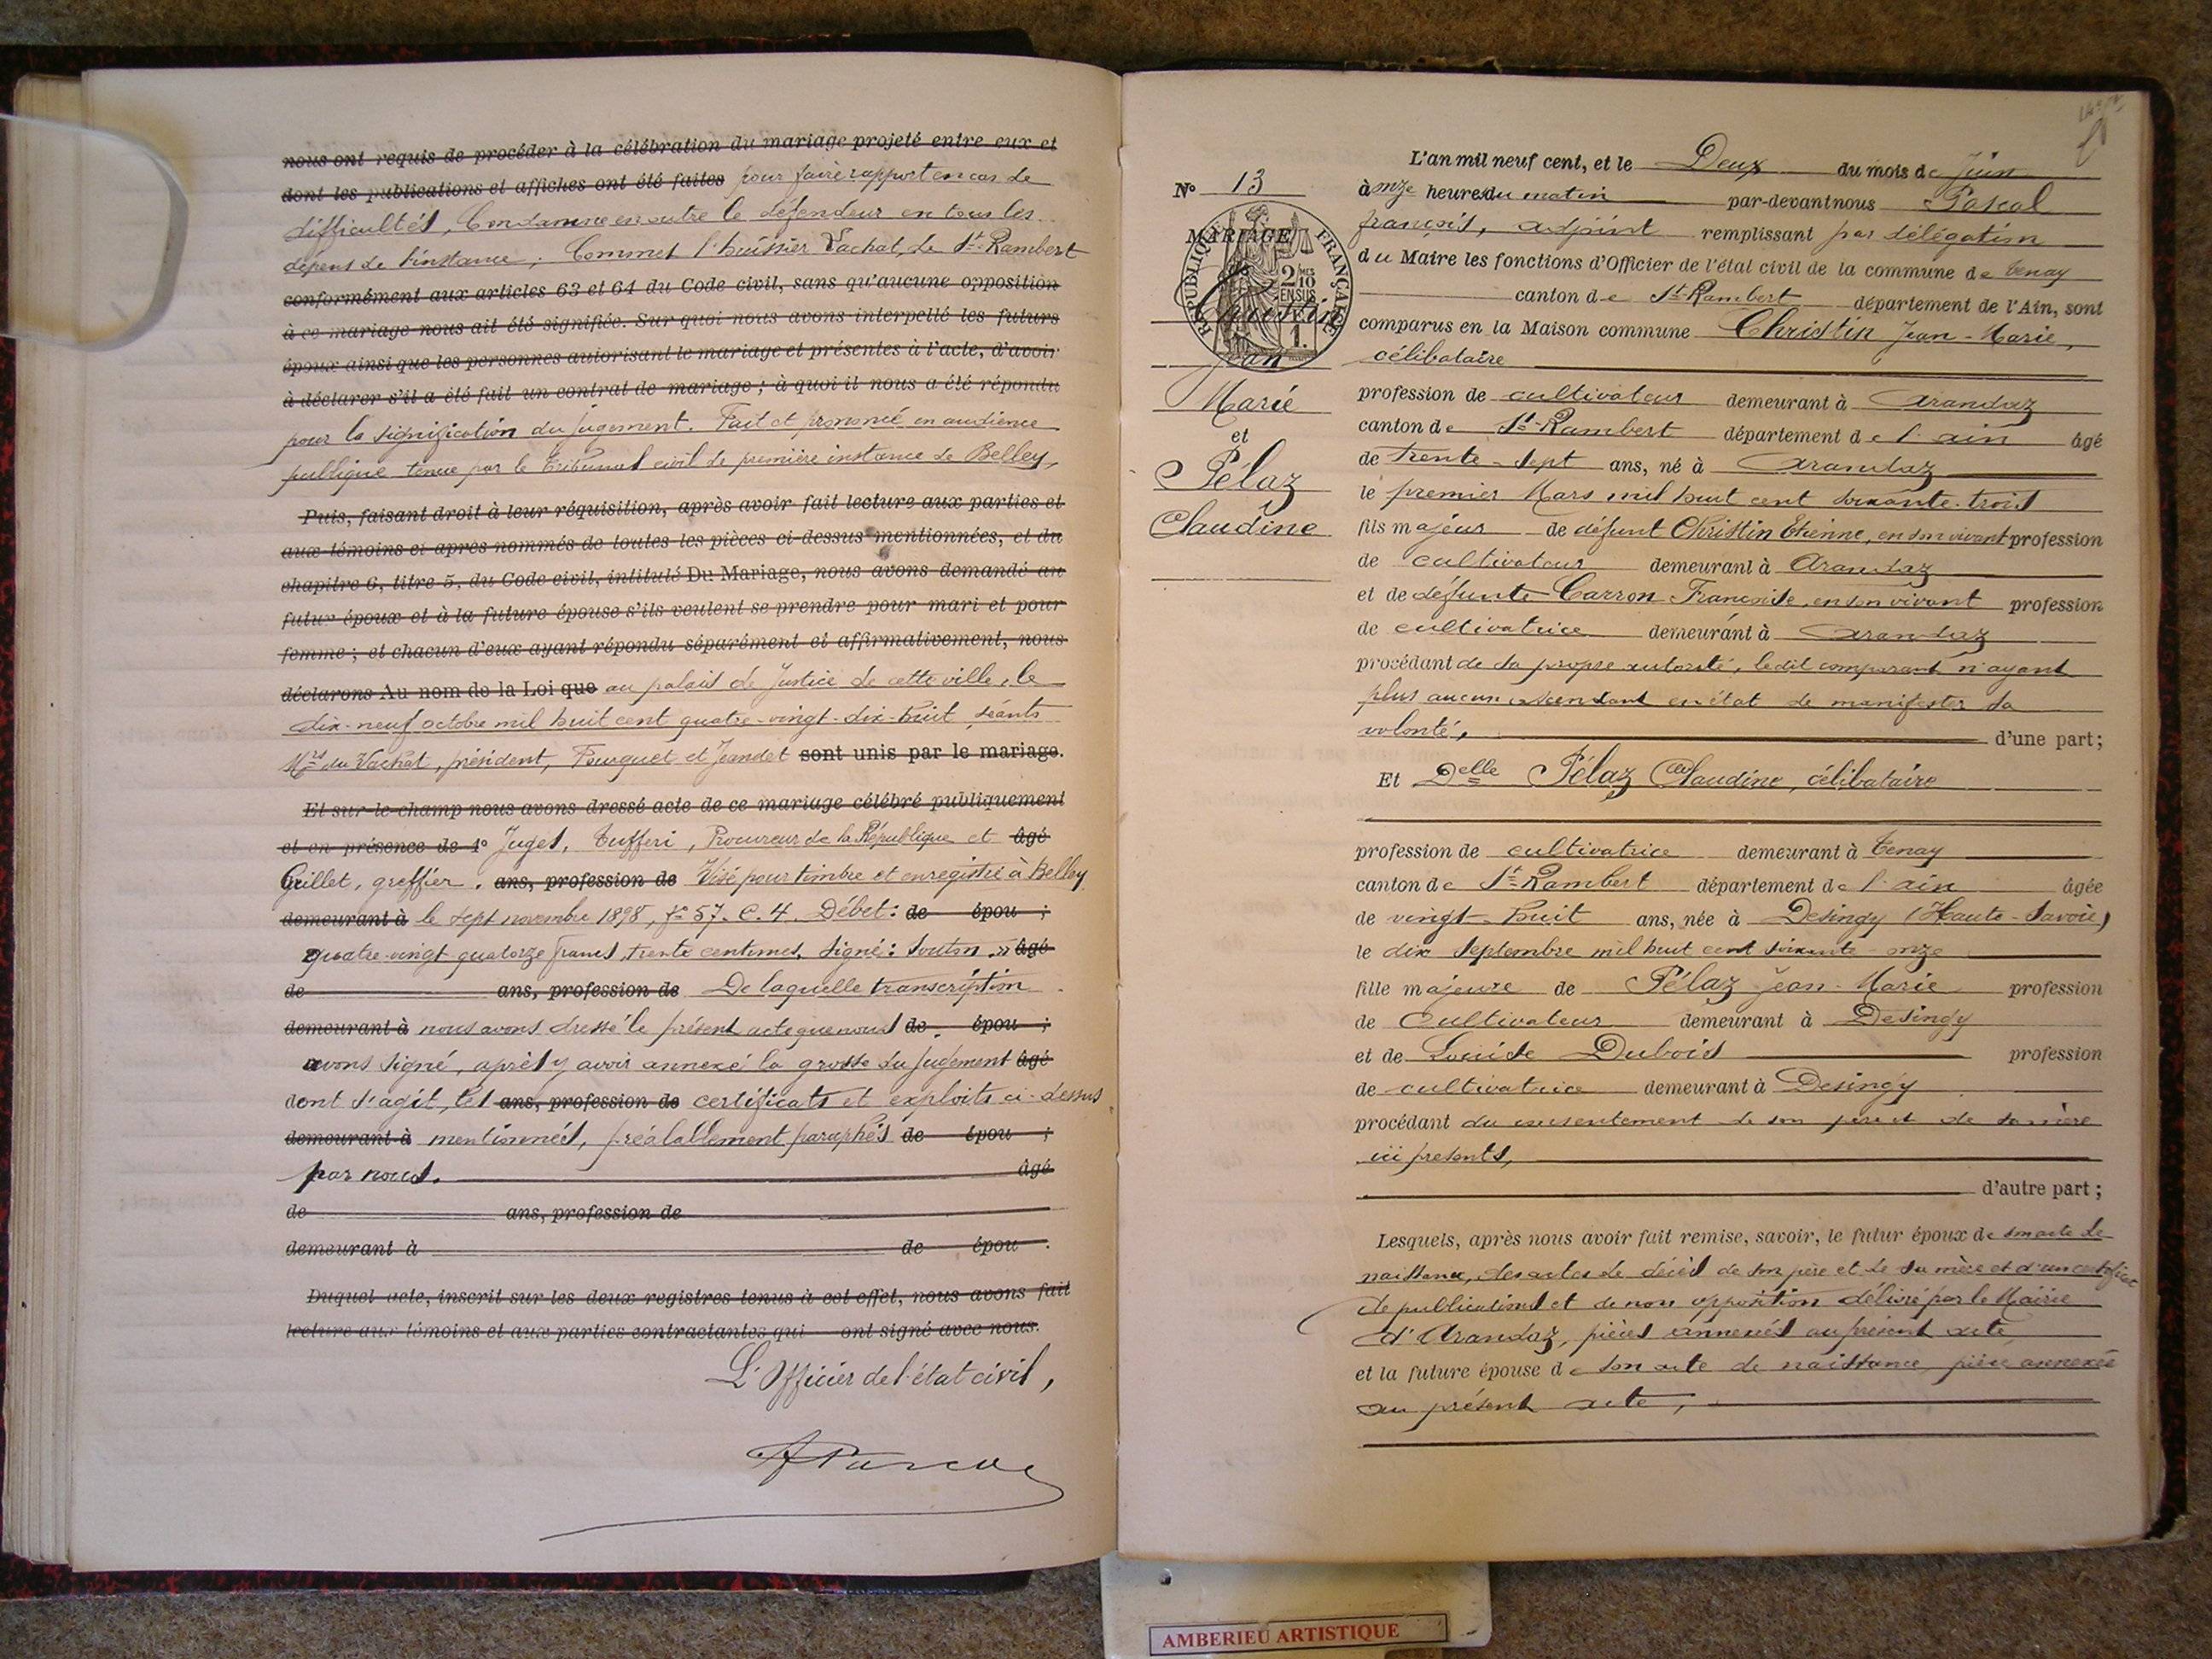 nous ont requis de procéder à la célébration du mariage projeté entre eux et
dont les publications et affiches ont été faites pour faire rapport en cas de
difficultés, Condamne en outre le défendeur en tous les
dépens de l'instance; Commet l'huissier Vachat, de St-Rambert
conformément aux articles 63 et 64 du Code civil, sans qu'aucune opposition
à ce mariage nous ait été signifiée. Sur quoi nous avons interpellé les futurs
époux ainsi que les personnes autorisant le mariage et présentes à l'acte, d'avoir
à déclarer s'il a été fait un contrat de mariage; à quoi il nous a été répondu
pour la signification du jugement. Fait et prononcé en audience
publique tenue par le tribunal civil de première instance de Belley,
Puis, faisant droit à leur réquisition, après avoir fait lecture aux parties et
aux témoins ci après nommés de toutes les pièces ci-dessus mentionnées, et du
chapitre 6, titre 5, du Code civil, intitulé Du Mariage, nous avons demandé au
futur époux et à la future épouse s'ils veulent se prendre pour mari et pour
femme; et chacun d'eux ayant répondu séparément et affirmativement, nous
déclarons Au nom de la Loi que au palais de Justice de cette ville, le
dix-neuf octobre mil huit cent quatre-vingt-dix-huit, séants
Mrs du Vachat, président, Fourquet et Jeandet sont unis par le mariage.
Et sur-le-champ nous avons dressé acte de ce mariage célébré publiquement
et en présence de 1° Juges, Tufferi, Procureur de la République et âgé
Grillet, greffier. ans, profession de Visé pour timbre et enregistré à Belley
demeurant à le sept novembre 1898, fo 57. C. 4. Débet: de épou ;
quatre-vingt quatorze francs, trente centimes, signé: Souton » âgé
de ans, profession de De laquelle transcription
demeurant à nous avons dressé le présent acte que nous de épou ;
avons signé, après y avoir annexé la grosse du Jugement âgé
dont s'agit, les ans, profession de certificats et exploits ci-dessus
demeurant à mentionnés, préalablement paraphés de épou ;
par nous. âgé
de ans, profession de
demeurant à de épou .
Duquel acte, inscrit sur les deux registres tenus à cet effet, nous avons fait
lecture aux témoins et aux parties contractantes qui ont signé avec nous.
L'Officier de l'état civil,
N° 13
MARIAGE
RÉPUBLIQUE FRANÇAISE
2/10 MES
EN SUS
1.
de
Christin
Jean
Marie
et
Pélaz
Claudine
L'an mil neuf cent, et le Deux du mois de Juin
à onze heures du matin par-devant nous Pascal
françois, adjoint remplissant par délégation
du Maire les fonctions d'Officier de l'état civil de la commune de Tenay
canton de St-Rambert département de l'Ain, sont
comparus en la Maison commune Christin Jean-Marie,
célibataire
profession de cultivateur demeurant à Arandaz
canton de St-Rambert département de l'ain âgé
de trente-sept ans, né à Arandaz
le premier Mars mil huit cent soixante-trois
fils majeur de défunt Christin Etienne, en son vivant profession
de cultivateur demeurant à Arandaz
et de défunte Carron Françoise, en son vivant profession
de cultivatrice demeurant à Arandaz
procédant de sa propre autorité, ledit comparant n'ayant
plus aucun ascendant en état de manifester sa
volonté, d'une part;
Et Delle Pélaz Claudine, célibataire
profession de cultivatrice demeurant à Tenay
canton de St-Rambert département de l'ain âgée
de vingt-huit ans, née à Desingy (Haute-Savoie)
le dix Septembre mil huit cent soixante-onze
fille majeure de Pélaz Jean-Marie profession
de Cultivateur demeurant à Desingy
et de Louise Dubois profession
de cultivatrice demeurant à Desingy
procédant du consentement de son père et de sa mère
ici présents,
d'autre part;
Lesquels, après nous avoir fait remise, savoir, le futur époux de son acte de
naissance, des actes de décès de son père et de sa mère et d'un certificat
de publications et de non opposition délivré par le Maire
d'Arandaz, pièces annexées au présent acte
et la future épouse de son acte de naissance, pièce annexée
au présent acte,
AMBERIEU ARTISTIQUE